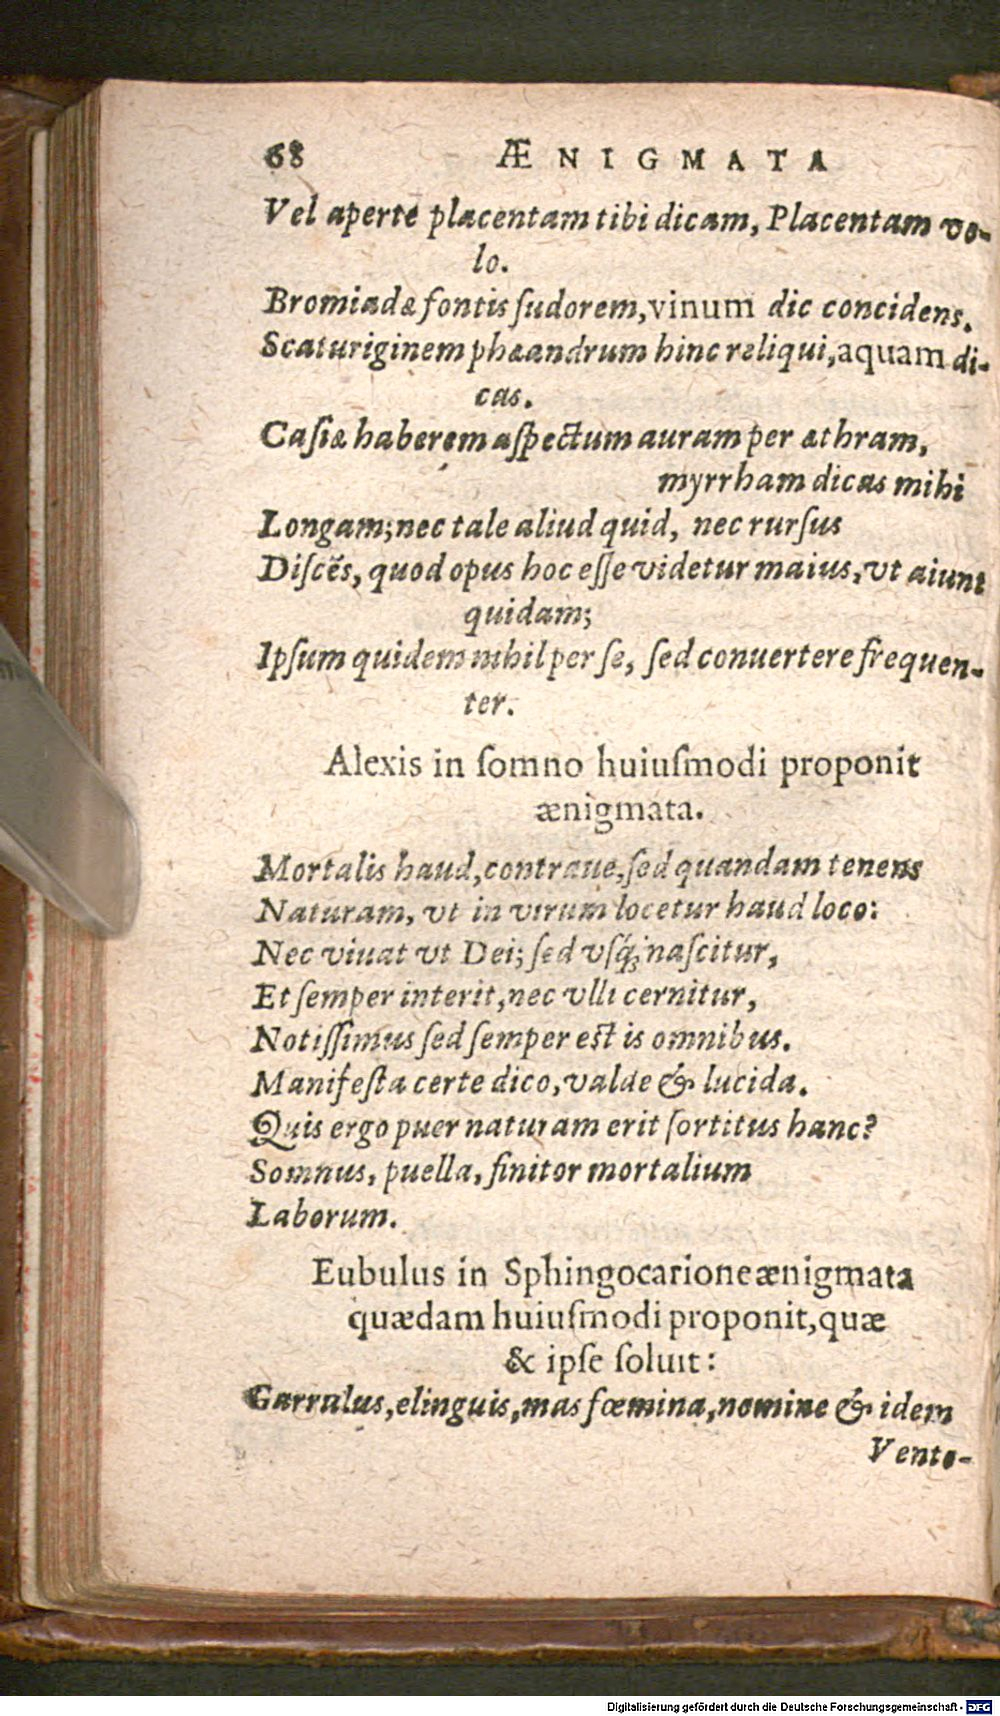 68 ÆNIGMATA
Vel aperte placentam tibi dicam, Placentam vo-
lo.
Bromiadæ fontis ſudorem, vinum dic concidens.
Scaturiginem phæandrum hinc reliqui, aquam di-
cas.
Caſiæ haberem aſpectum auram per æthram,
myrrham dicas mihi
Longam; nec tale aliud quid, nec rurſus
Diſcẽs, quod opus hoc eſſe videtur maius, vt aiunt
quidam;
Ipſum quidem nihil per ſe, ſed conuertere frequen-
ter.
Alexis in ſomno huiuſmodi proponit
ænigmata.
Mortalis haud, contraue, ſed quandam tenens
Naturam, vt in virum locetur haud loco:
Nec viuat vt Dei; ſed vſq́; naſcitur,
Et ſemper interit, nec vlli cernitur,
Notiſſimus ſed ſemper eſt is omnibus.
Manifeſta certe dico, valde & lucida.
Quis ergo puer naturam erit ſortitus hanc?
Somnus, puella, finitor mortalium
Laborum.
Eubulus in Sphingocarione ænigmata
quædam huiuſmodi proponit, quæ
& ipſe ſoluit:
Garrulus, elinguis, mas fœmina, nomine & idem
Vento-
Digitalisierung gefördert durch die Deutsche Forschungsgemeinschaft - DFG